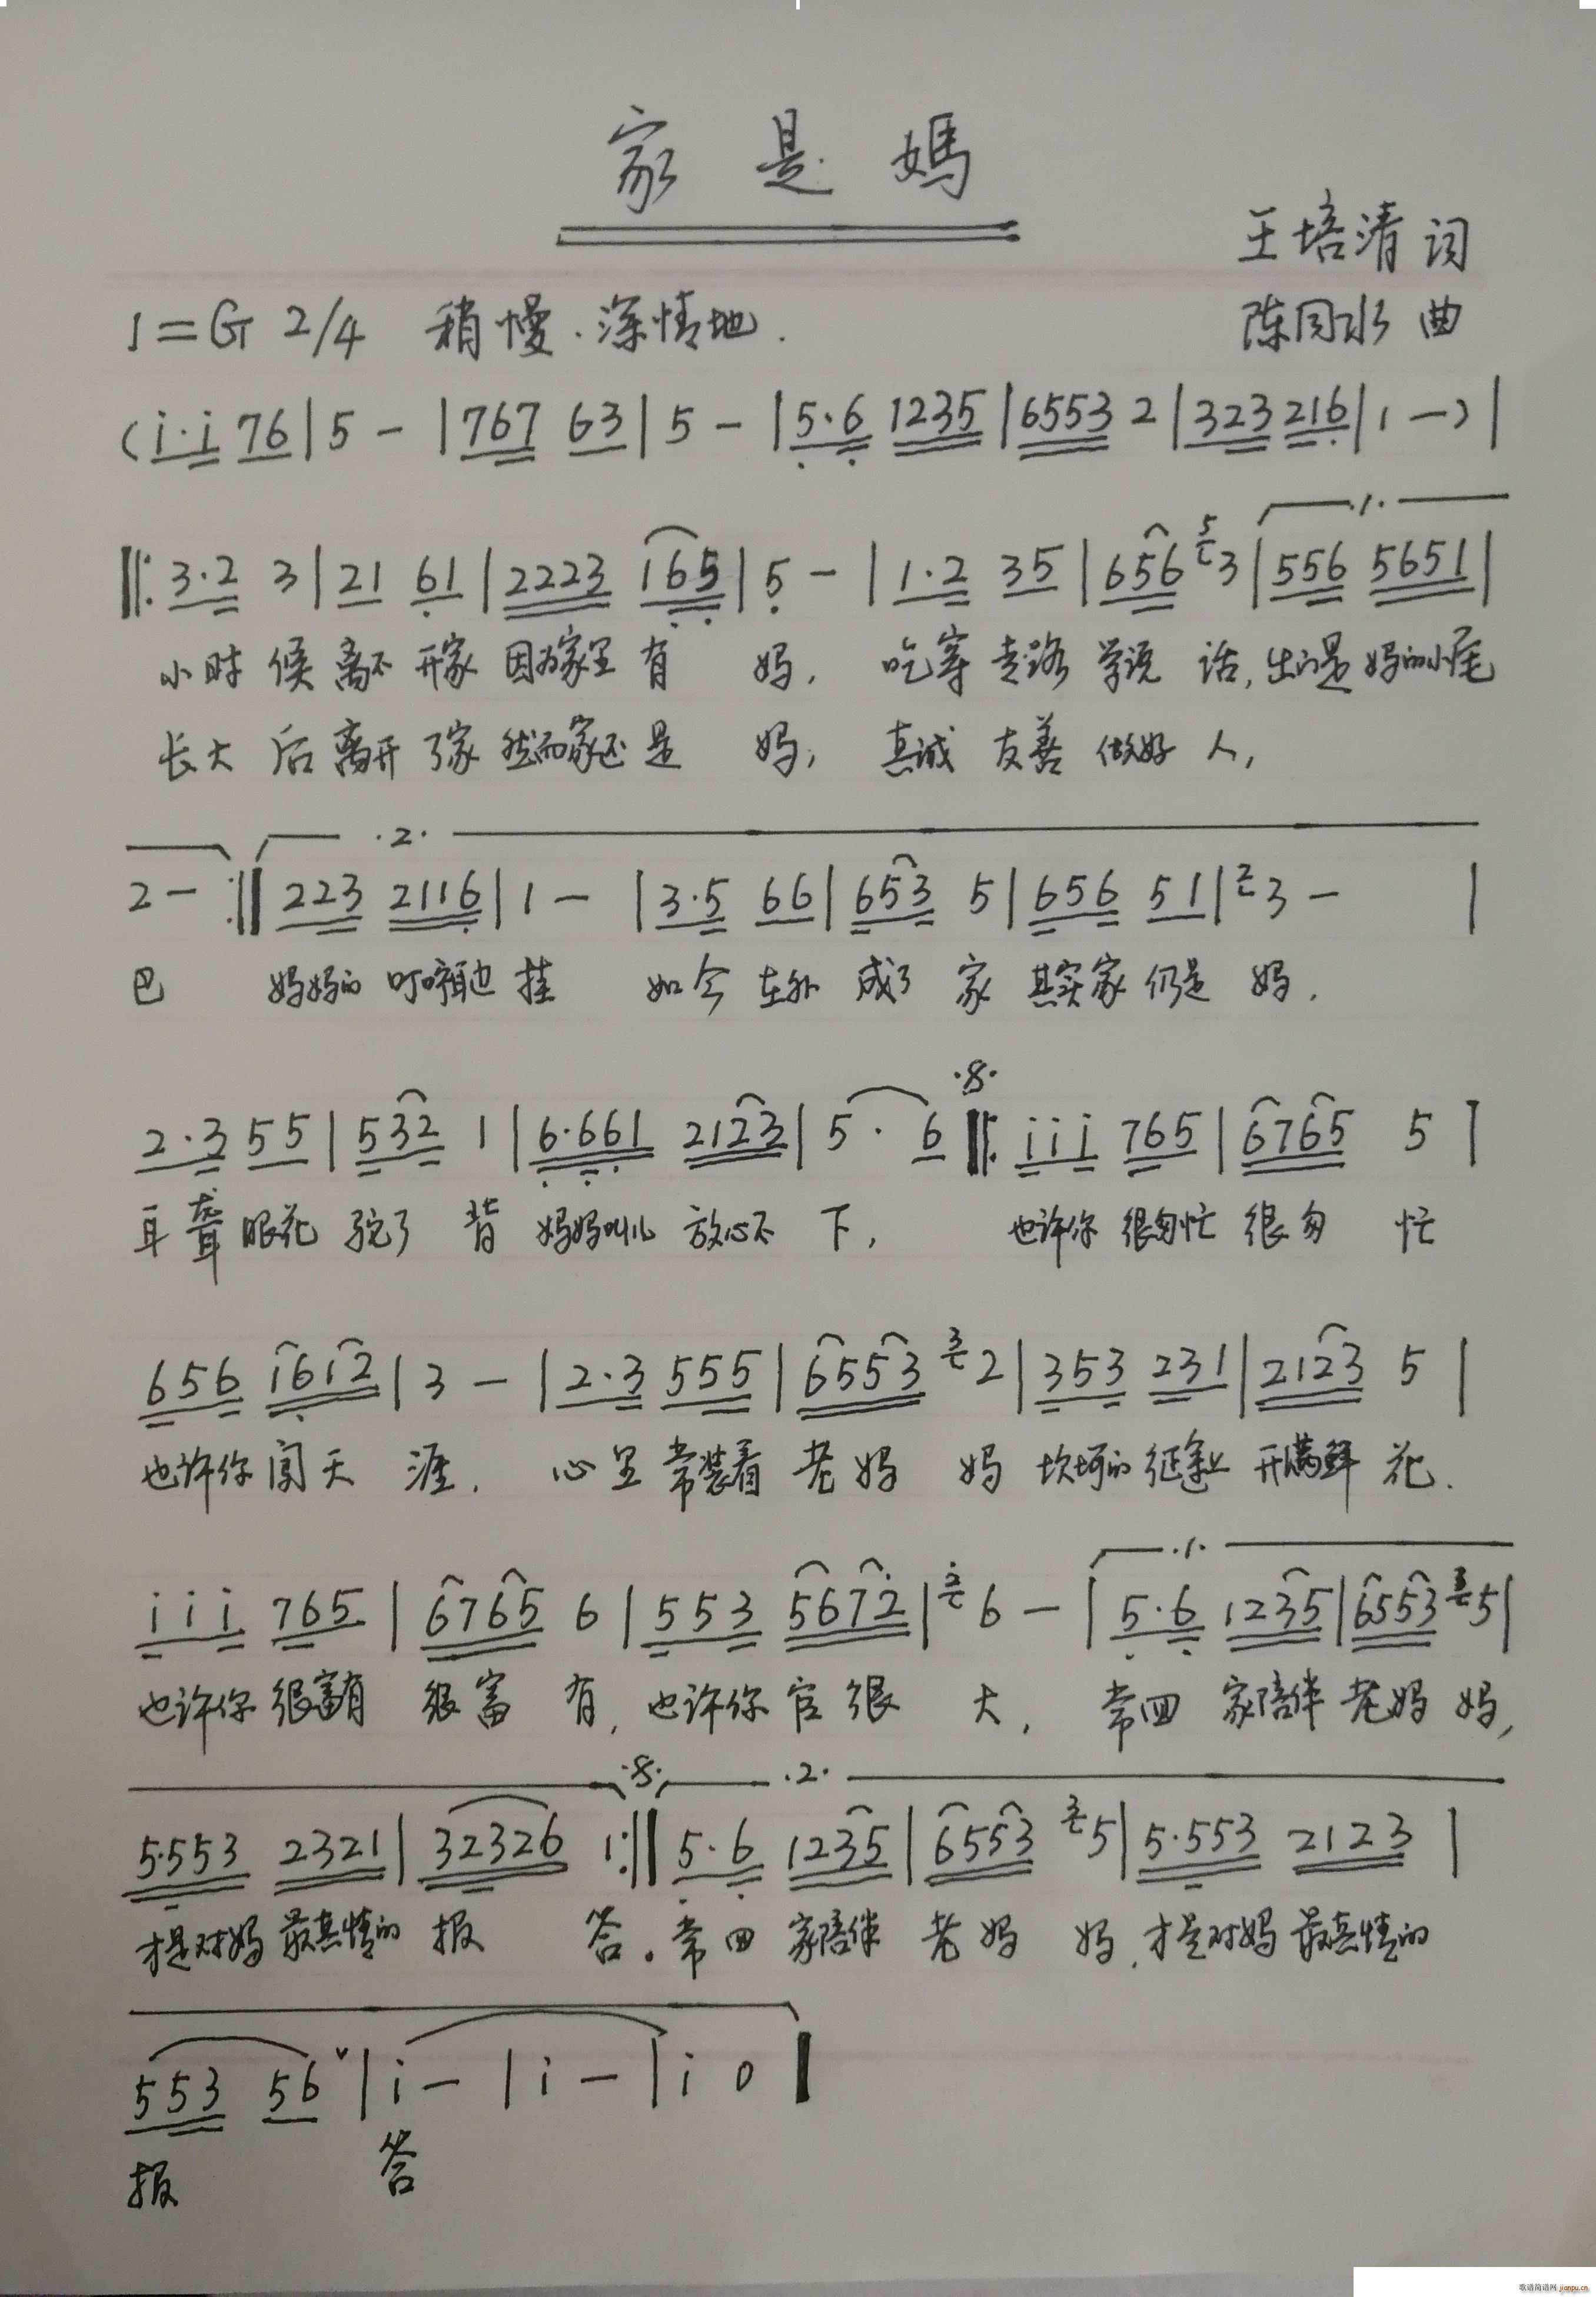 家是媽
王培清 词
1=G 2/4 稍慢.深情地.
陈同水 曲
(i·i 76|5 - |767 63|5 - |5·6 1235|6553 2|323 216|1 -)|
1.
‖: 3·2 3|21 61|2223 165|5 - |1·2 35|656 5 3|556 5651|
小时候离不开家因为家里有妈, 吃穿走路学说话,出门是妈的小尾
长大后离开了家然而家还是妈, 真诚友善做好人,
·2·
2 - :‖ 223 2116|1 - |3·5 66|653 5|656 51|2 3 - |
巴 妈妈的叮咛耳边挂 如今在外成了家其实家仍是妈.
·S·
2·3 55|532 1|6·661 2123|5· 6 ‖: iii 765|6765 5|
耳聋眼花驼了背妈妈叫儿放心不下, 也许你很匆忙很匆忙
656 1612|3 - |2·3 555|6553 3 2|353 231|2123 5|
也许你闯天涯. 心里常装着老妈妈坎坷的征途上开满鲜花.
·1·
iii 765|6765 6|553 5672|2 6 - |5·6 1235|6553 3 5|
也许你很富有很富有,也许你官很大, 常回家陪伴老妈妈,
·S· ·2·
5·553 2321|32326 1:‖ 5·6 1235|6553 3 5|5·553 2123|
才是对妈最真情的报答。常回家陪伴老妈妈,才是对妈最真情的
553 56 ˅|i - |i - |i 0 ‖
报 答
歌谱简谱网 jianpu.cn